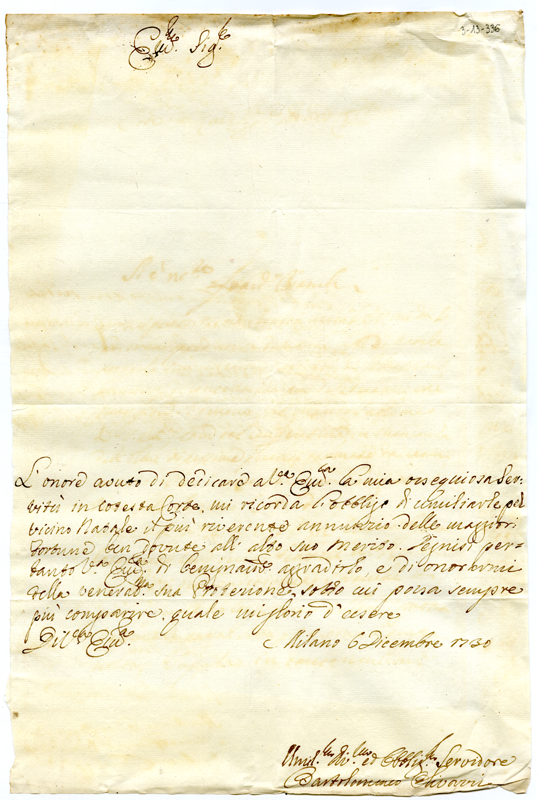 3-13-336
Em.ᵐᵒ Sig.ʳᵉ
L'onore avuto di dedicare a V.ʳᵃ Em.ᶻᵃ la mia ossequiosa Ser-
vitù in cotesta Corte, mi ricorda l'obbligo di umiliarle pel
vicino Natale il più riverente annunzio delle maggiori
fortune ben dovute all' alto suo Merito. Degnisi per-
tanto V.ʳᵃ Em.ᶻᵃ di benignam.ᵗᵉ aggradirlo, e di onorarmi
della venerat.ᵐᵃ sua Protezione, sotto cui possa sempre
più comparire quale mi glorio d'essere
Di V.ʳᵃ Em.ᶻᵃ
Milano 6 Dicembre 1730
Umil.ᵐᵒ Div.ᵐᵒ ed Obblig.ᵐᵒ Servidore
Bartolomeo